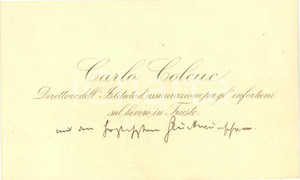 Carlo Colcuc
Direttore dell' Istituto d'assicurazione per gl' infortuni
sul lavoro, in Trieste.
mit den herzlichsten Glückwünschen